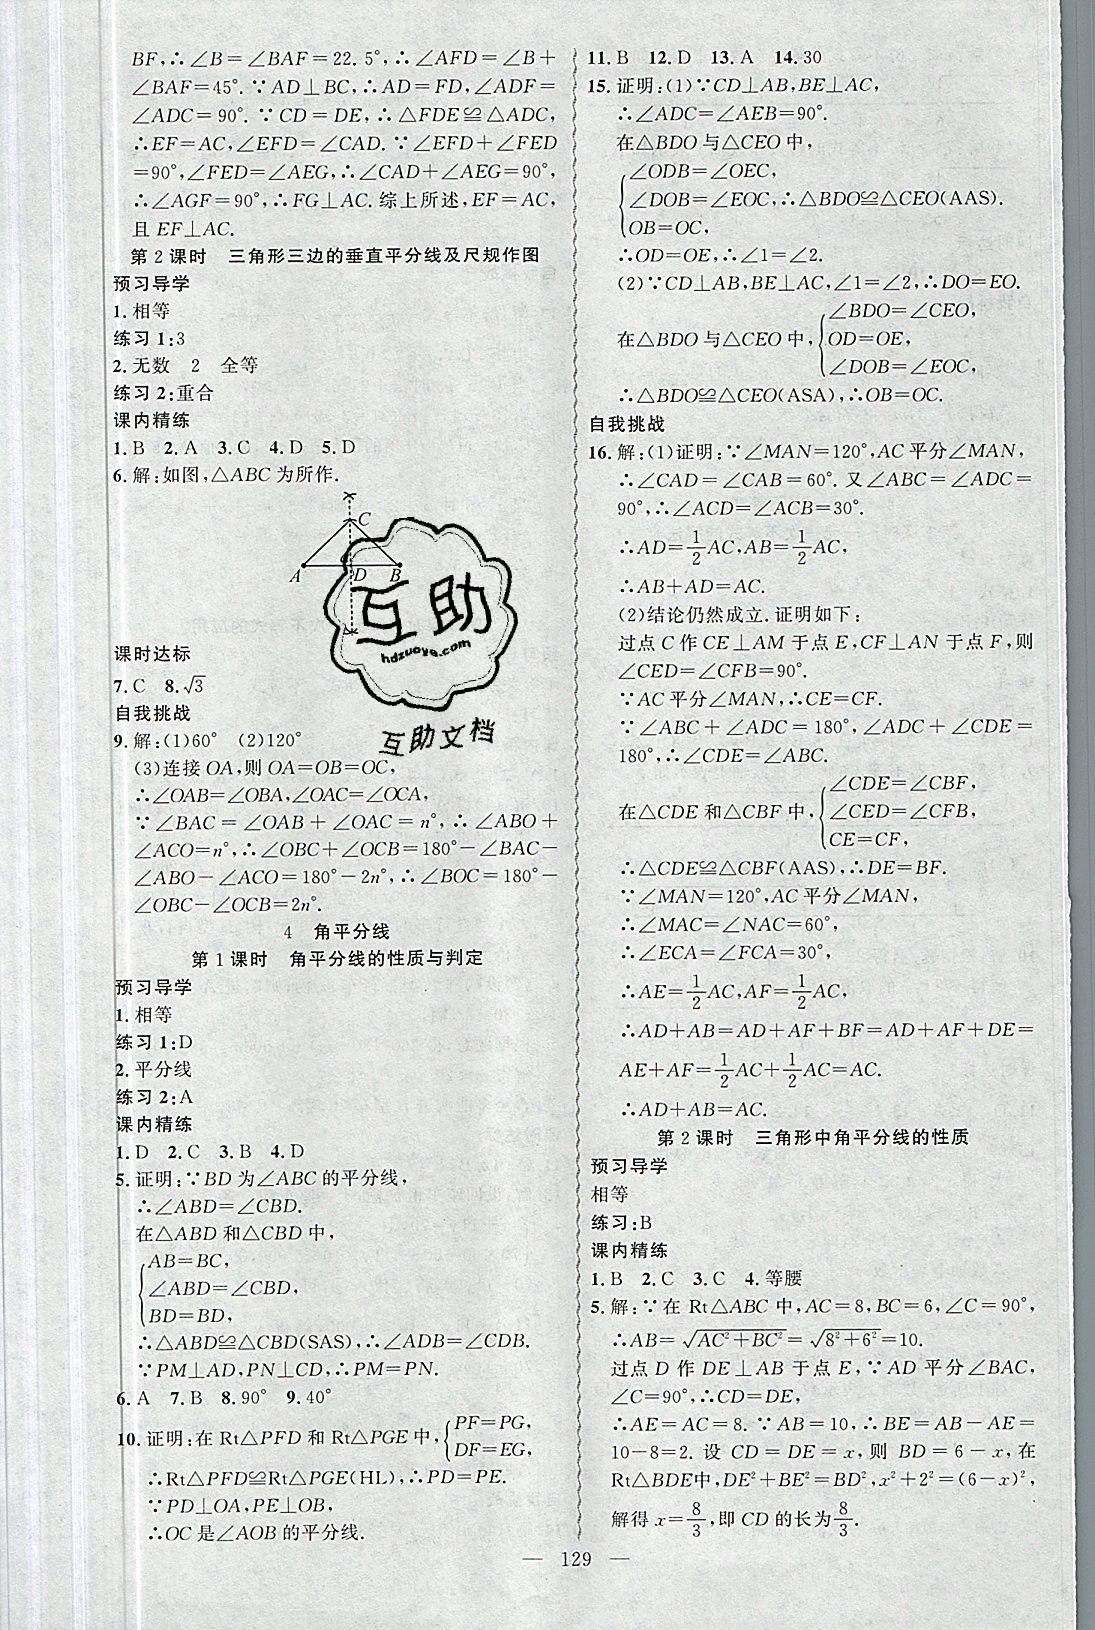 BF,∴∠B=∠BAF=22.5°.∴∠AFD=∠B+
∠BAF=45°.∵AD⊥BC,∴AD=FD,∠ADF=
∠ADC=90°.∵CD=DE,∴△FDE≌△ADC,
∴EF=AC,∠EFD=∠CAD.∵∠EFD+∠FED
=90°,∠FED=∠AEG,∴∠CAD+∠AEG=90°,
∴∠AGF=90°,∴FG⊥AC.综上所述,EF=AC,
且EF⊥AC.
第2课时 三角形三边的垂直平分线及尺规作图
预习导学
1.相等
练习1:3
2.无数 2 全等
练习2:重合
课内精练
1.B 2.A 3.C 4.D 5.D
6.解:如图,△ABC为所作.
C
A D B
互助
hdzuoye.com
互助文档
课时达标
7.C 8.√3
自我挑战
9.解:(1)60° (2)120°
(3)连接OA,则OA=OB=OC,
∴∠OAB=∠OBA,∠OAC=∠OCA,
∵∠BAC=∠OAB+∠OAC=n°,∴∠ABO+
∠ACO=n°,∴∠OBC+∠OCB=180°-∠BAC-
∠ABO-∠ACO=180°-2n°,∴∠BOC=180°-
∠OBC-∠OCB=2n°.
4 角平分线
第1课时 角平分线的性质与判定
预习导学
1.相等
练习1:D
2.平分线
练习2:A
课内精练
1.D 2.C 3.B 4.D
5.证明:∵BD为∠ABC的平分线,
∴∠ABD=∠CBD.
在△ABD和△CBD中,
AB=BC,
∠ABD=∠CBD,
BD=BD,
∴△ABD≌△CBD(SAS),∴∠ADB=∠CDB.
∵PM⊥AD,PN⊥CD,∴PM=PN.
6.A 7.B 8.90° 9.40°
10.证明:在Rt△PFD和Rt△PGE中,{PF=PG,
DF=EG,
∴Rt△PFD≌Rt△PGE(HL),∴PD=PE.
∵PD⊥OA,PE⊥OB,
∴OC是∠AOB的平分线.
11.B 12.D 13.A 14.30
15.证明:(1)∵CD⊥AB,BE⊥AC,
∴∠ADC=∠AEB=90°.
在△BDO与△CEO中,
∠ODB=∠OEC,
∠DOB=∠EOC,∴△BDO≌△CEO(AAS).
OB=OC,
∴OD=OE,∴∠1=∠2.
(2)∵CD⊥AB,BE⊥AC,∠1=∠2,∴DO=EO.
∠BDO=∠CEO,
在△BDO与△CEO中,{OD=OE,
∠DOB=∠EOC,
∴△BDO≌△CEO(ASA),∴OB=OC.
自我挑战
16.解:(1)证明:∵∠MAN=120°,AC平分∠MAN,
∴∠CAD=∠CAB=60°.又∠ABC=∠ADC=
90°,∴∠ACD=∠ACB=30°.
∴AD=1/2AC,AB=1/2AC,
∴AB+AD=AC.
(2)结论仍然成立.证明如下:
过点C作CE⊥AM于点E,CF⊥AN于点F,则
∠CED=∠CFB=90°.
∵AC平分∠MAN,∴CE=CF.
∵∠ABC+∠ADC=180°,∠ADC+∠CDE=
180°,∴∠CDE=∠ABC.
∠CDE=∠CBF,
在△CDE和△CBF中,{∠CED=∠CFB,
CE=CF,
∴△CDE≌△CBF(AAS),∴DE=BF.
∵∠MAN=120°,AC平分∠MAN,
∴∠MAC=∠NAC=60°,
∴∠ECA=∠FCA=30°,
∴AE=1/2AC,AF=1/2AC,
∴AD+AB=AD+AF+BF=AD+AF+DE=
AE+AF=1/2AC+1/2AC=AC.
∴AD+AB=AC.
第2课时 三角形中角平分线的性质
预习导学
相等
练习:B
课内精练
1.B 2.C 3.C 4.等腰
5.解:∵在Rt△ABC中,AC=8,BC=6,∠C=90°,
∴AB=√(AC²+BC²)=√(8²+6²)=10.
过点D作DE⊥AB于点E,∵AD平分∠BAC,
∠C=90°,∴CD=DE,
∴AE=AC=8.∵AB=10,∴BE=AB-AE=
10-8=2.设CD=DE=x,则BD=6-x,在
Rt△BDE中,DE²+BE²=BD²,x²+2²=(6-x)²,
解得x=8/3,即CD的长为8/3.
— 129 —